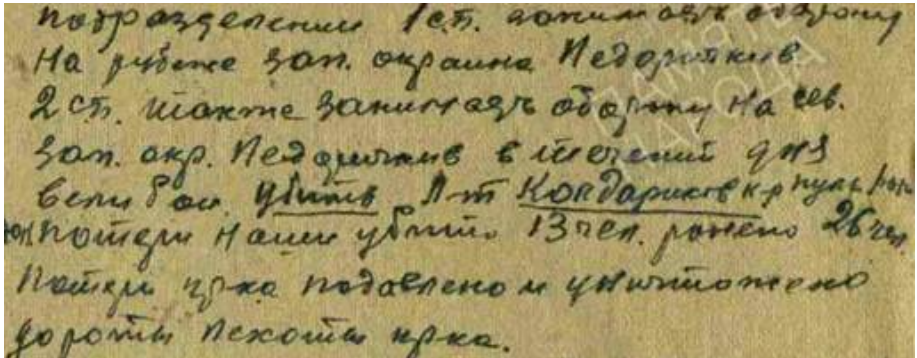 подразделении 1 сб. занимаеть оборону
на рубеже зап. окраина Недоричков
2 сб. также занимаеть оборону на сев.
зап. окр. Недоричков в течении дня
вели бои. Убить Л-т Кондариков к-р пуль
потери наши убито 13 чел. ранено 26 чел
Потери пр-ка подавлено и уничтожено
до роты пехоты пр-ка.
ПАМЯТЬ
НАРОДА